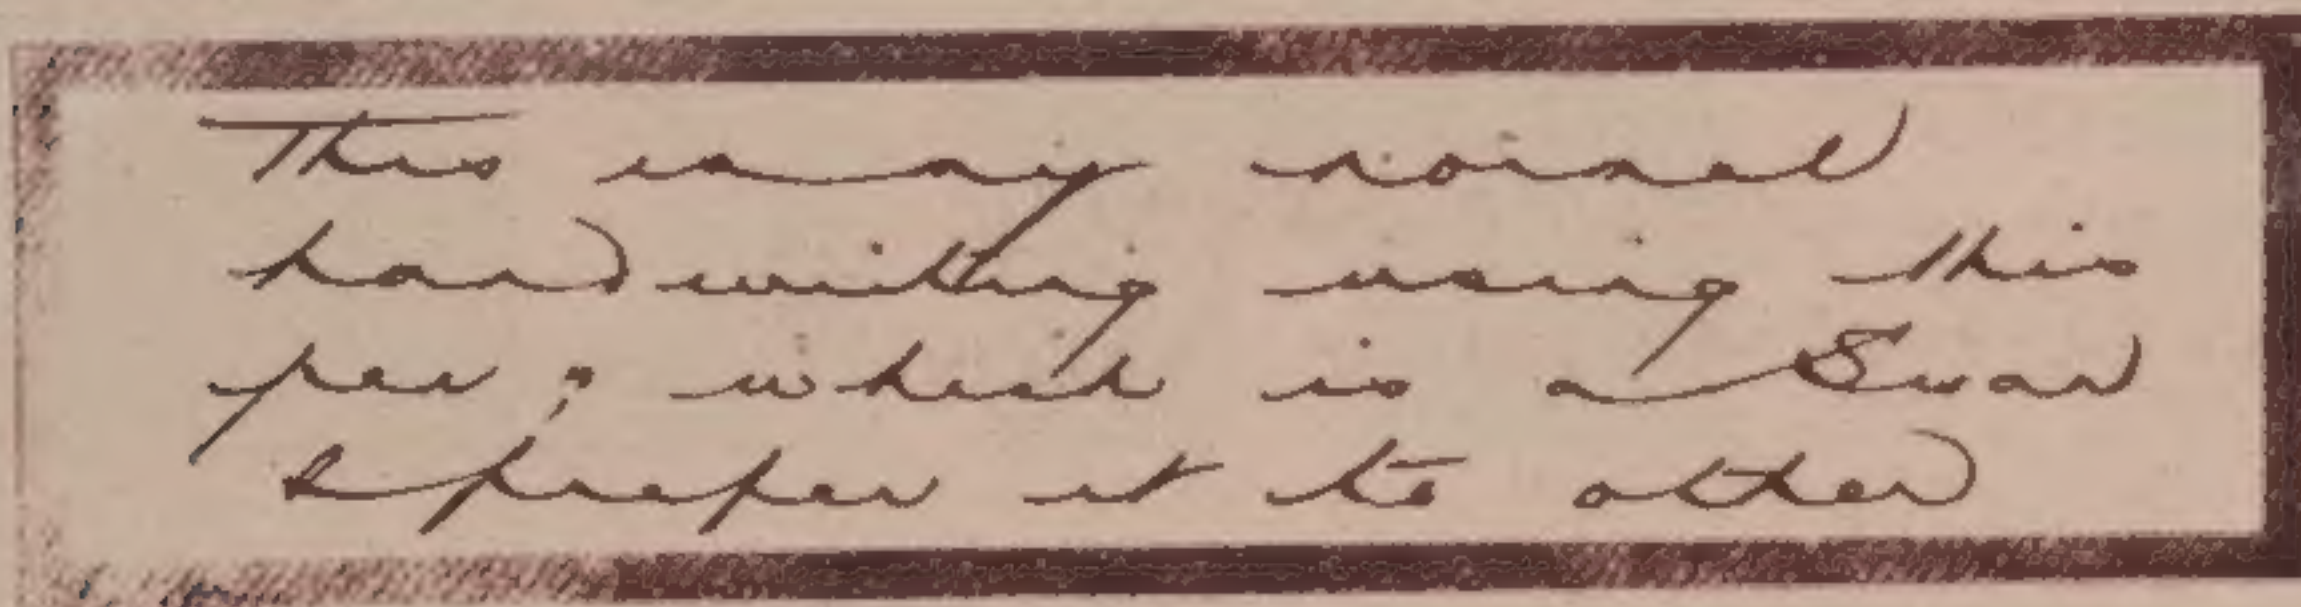 This is my normal
handwriting using this
pen, which is a Swan
& prefer it to other